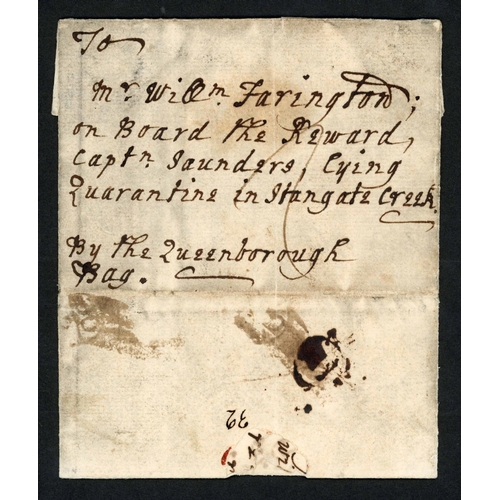 To
Mr. Willm. Farington;
on Board the Reward,
Captn. Saunders, Lying
Quarantine in Stangate Creek.
By the Queenborough
Bag.
32